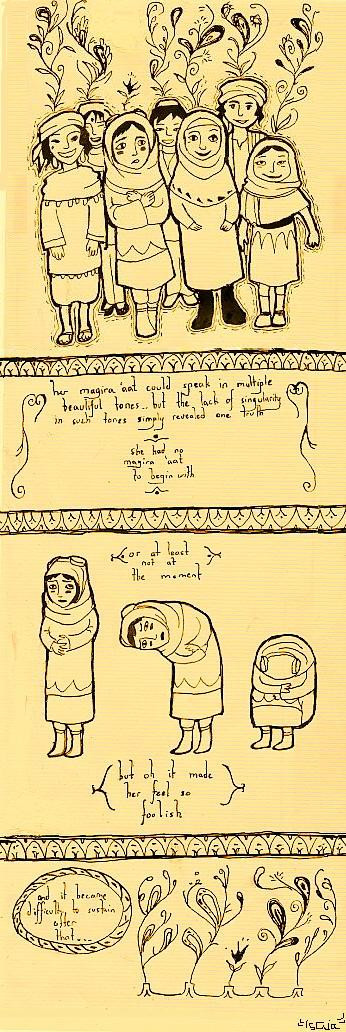 her magira 'aat could speak in multiple
beautiful tones.. but the lack of singularity
in such tones simply revealed one truth
she had no
magira 'aat
to begin with
or at least
not at
the moment
but oh it made
her feel so
foolish
and it became
difficulty to sustain
after
that...